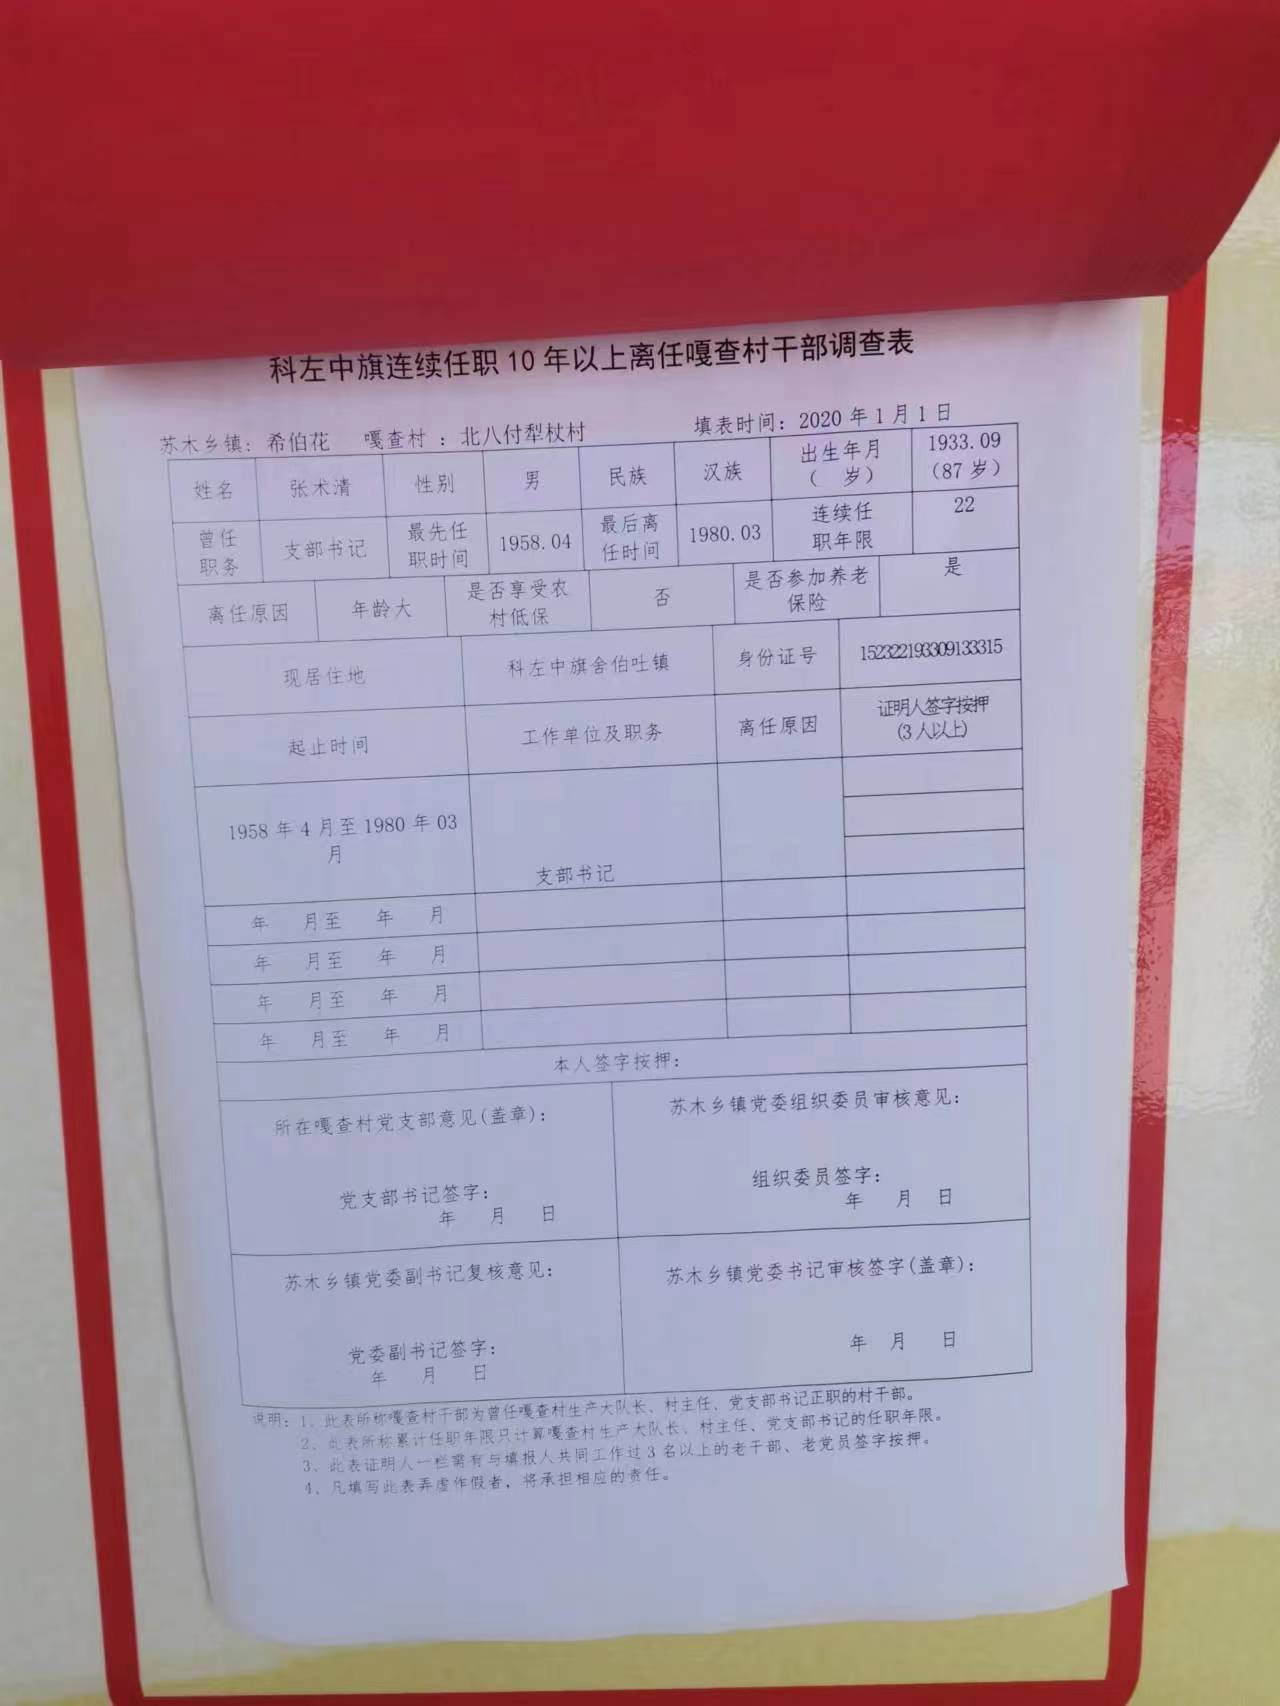 科左中旗连续任职10年以上离任嘎查村干部调查表
苏木乡镇：希伯花 嘎查村：北八付犁杖村 填表时间：2020年1月1日
姓名 张术清 性别 男 民族 汉族 出生年月（ 岁） 1933.09（87岁）
曾任职务 支部书记 最先任职时间 1958.04 最后离任时间 1980.03 连续任职年限 22
离任原因 年龄大 是否享受农村低保 否 是否参加养老保险 是
现居住地 科左中旗舍伯吐镇 身份证号 152322193309133315
起止时间 工作单位及职务 离任原因 证明人签字按押(3人以上)
1958年4月至1980年03月 支部书记
年 月至 年 月
年 月至 年 月
年 月至 年 月
年 月至 年 月
本人签字按押：
所在嘎查村党支部意见(盖章)：
党支部书记签字：
年 月 日
苏木乡镇党委组织委员审核意见：
组织委员签字：
年 月 日
苏木乡镇党委副书记复核意见：
党委副书记签字：
年 月 日
苏木乡镇党委书记审核签字(盖章)：
年 月 日
说明：1、此表所称嘎查村干部为曾任嘎查村生产大队长、村主任、党支部书记正职的村干部。
2、此表所称累计任职年限只计算嘎查村生产大队长、村主任、党支部书记的任职年限。
3、此表证明人一栏需有与填报人共同工作过3名以上的老干部、老党员签字按押。
4、凡填写此表弄虚作假者，将承担相应的责任。